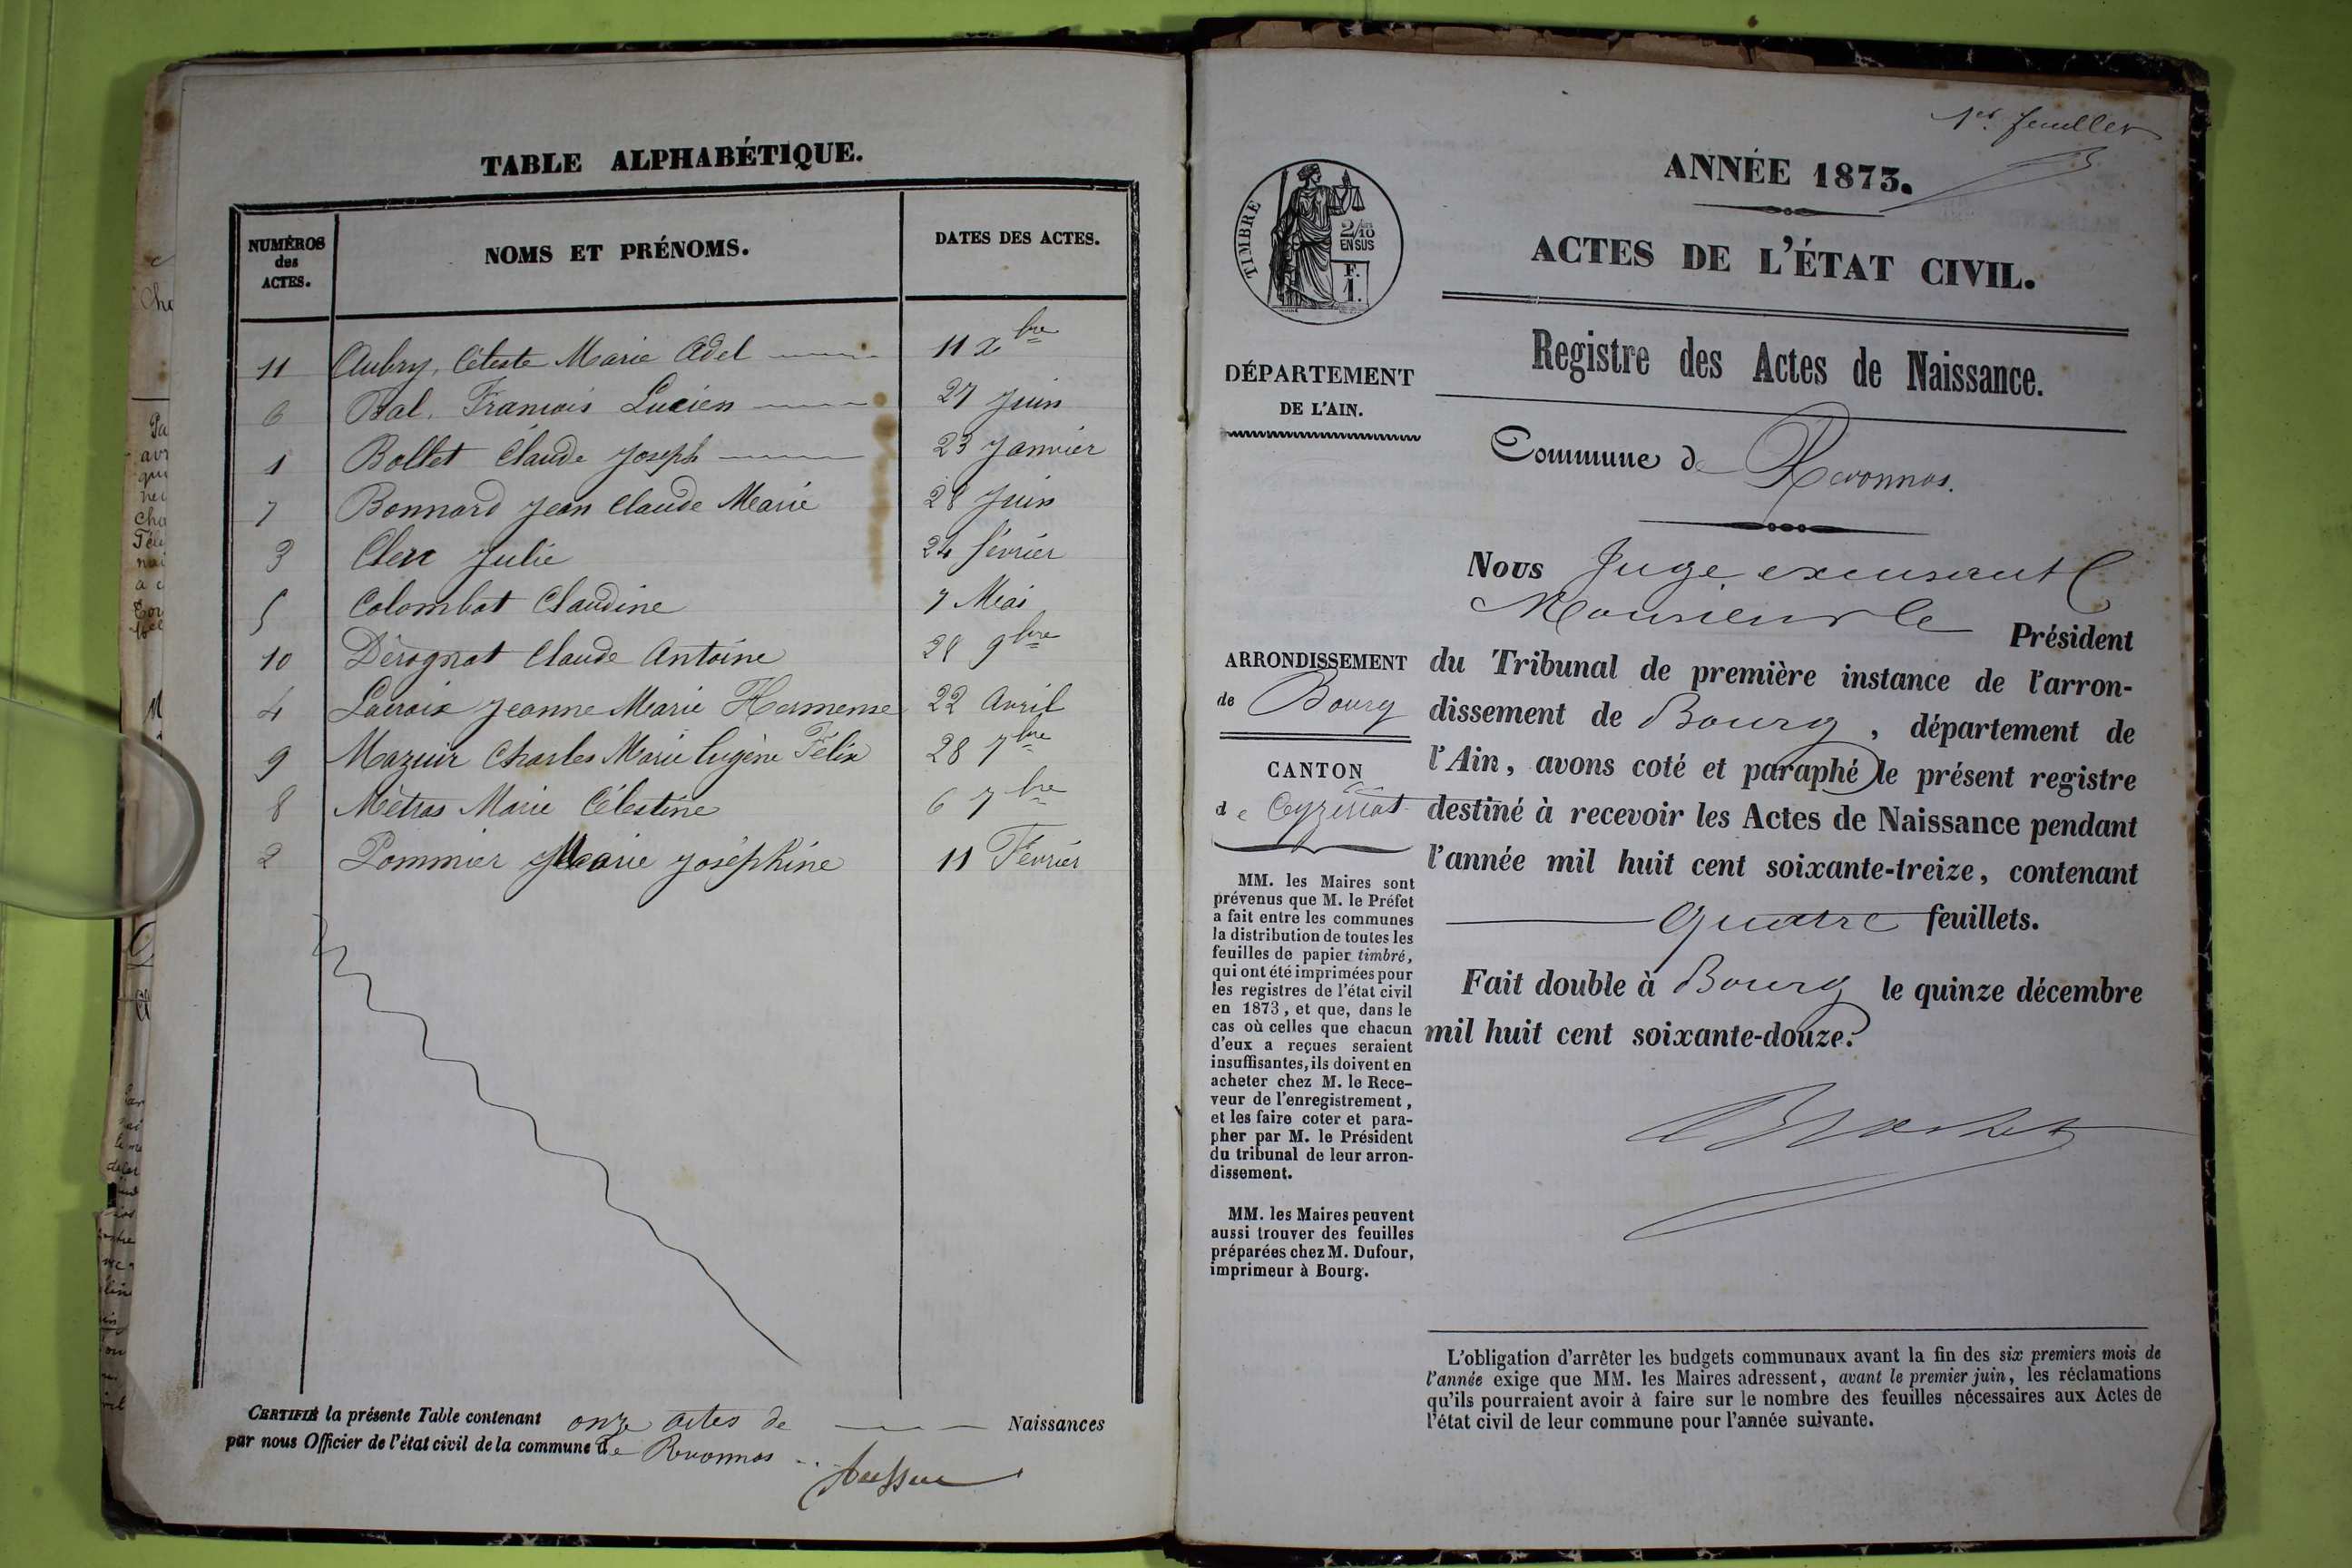 TABLE ALPHABÉTIQUE.
NUMÉROS des ACTES.
NOMS ET PRÉNOMS.
DATES DES ACTES.
11 Aubry, Céleste Marie Adel 11 Xbre
6 Bal, François Lucien 27 Juin
1 Bollet Claude Joseph 23 Janvier
7 Bonnard Jean Claude Marie 28 Juin
3 Clerc Julie 24 février
5 Colombat Claudine 7 Mai
10 Dérognat Claude Antoine 28 9bre
4 Lacroix Jeanne Marie Hermense 22 Avril
9 Mazuir Charles Marie Eugène Félix 28 7bre
8 Métras Marie Célestine 6 7bre
2 Pommier Marie Joséphine 11 Février
CERTIFIÉ la présente Table contenant onze actes de Naissances
par nous Officier de l'état civil de la commune de Revonnas
1er feuillet
ANNÉE 1873.
ACTES DE L'ÉTAT CIVIL.
TIMBRE
2/10
EN SUS
F.
1.
Registre des Actes de Naissance.
DÉPARTEMENT
DE L'AIN.
Commune de Revonnas.
Nous Juge excusant
Monsieur le Président
du Tribunal de première instance de l'arron-
dissement de Bourg, département de
l'Ain, avons coté et paraphé le présent registre
destiné à recevoir les Actes de Naissance pendant
l'année mil huit cent soixante-treize, contenant
quatre feuillets.
Fait double à Bourg le quinze décembre
mil huit cent soixante-douze.
ARRONDISSEMENT
de Bourg
CANTON
de Ceyzériat
MM. les Maires sont
prévenus que M. le Préfet
a fait entre les communes
la distribution de toutes les
feuilles de papier timbré,
qui ont été imprimées pour
les registres de l'état civil
en 1873, et que, dans le
cas où celles que chacun
d'eux a reçues seraient
insuffisantes, ils doivent en
acheter chez M. le Rece-
veur de l'enregistrement,
et les faire coter et para-
pher par M. le Président
du tribunal de leur arron-
dissement.
MM. les Maires peuvent
aussi trouver des feuilles
préparées chez M. Dufour,
imprimeur à Bourg.
L'obligation d'arrêter les budgets communaux avant la fin des six premiers mois de
l'année exige que MM. les Maires adressent, avant le premier juin, les réclamations
qu'ils pourraient avoir à faire sur le nombre des feuilles nécessaires aux Actes de
l'état civil de leur commune pour l'année suivante.